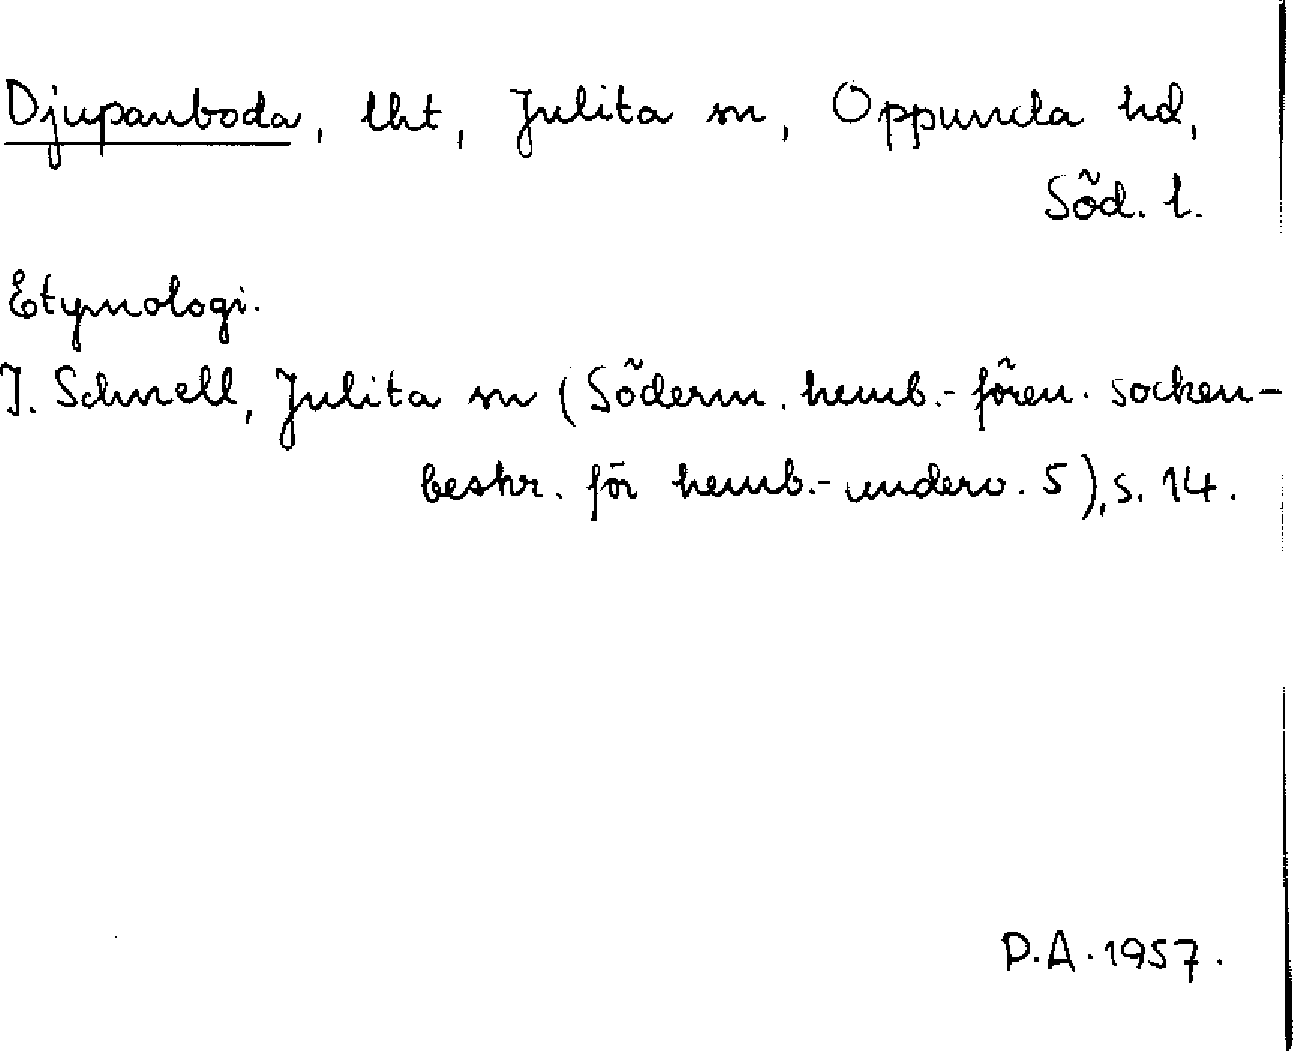 Djupanboda, lht, Julita sn, Oppunda hd,
Söd. l.
Etymologi.
I. Schnell, Julita sn (Söderm. hemb.-fören. socken-
beskr. för hemb.-underv. 5), s. 14.
P.A. 1957.